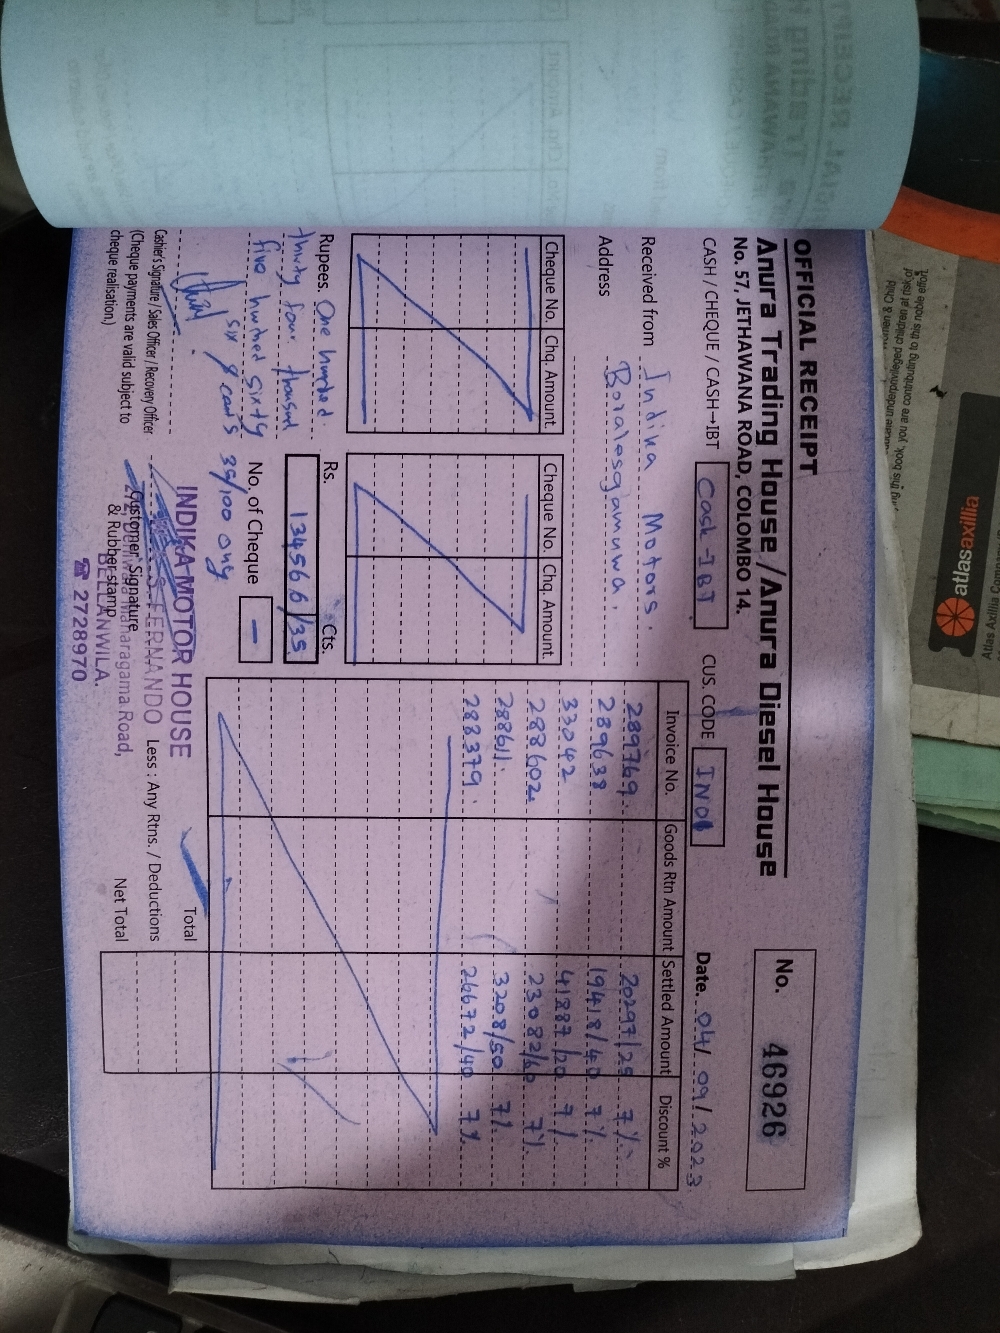 OFFICIAL RECEIPT
Anura Trading House/Anura Diesel House
No. 57, JETHAWANA ROAD, COLOMBO 14.
No. 46926
CASH / CHEQUE / CASH→IBT Cash - IBT CUS. CODE IN01 Date. 04/09/2023
Received from Indika Motors.
Address Boralesgamuwa.
Cheque No. Chq. Amount Cheque No. Chq. Amount
Rupees. One hundred
thirty four thousand
five hundred sixty
six & cents
35/100 only
Rs. Cts.
134566/35
No. of Cheque –
Cashier's Signature / Sales Officer / Recovery Officer
(Cheque payments are valid subject to
cheque realisation.)
Customer Signature
& Rubber stamp
INDIKA MOTOR HOUSE
S. FERNANDO
Maharagama Road,
BELLANWILA.
☎ 2728970
Invoice No. Goods Rtn Amount Settled Amount Discount %
289769. 20297/25 7%.
289638 19418/40 7%.
33042 41887/20 7%.
288602. 23082/60 7%.
288611. 3208/50 7%.
288379. 26672/40 7%.
Total
Less : Any Rtns. / Deductions
Net Total
atlasaxillia